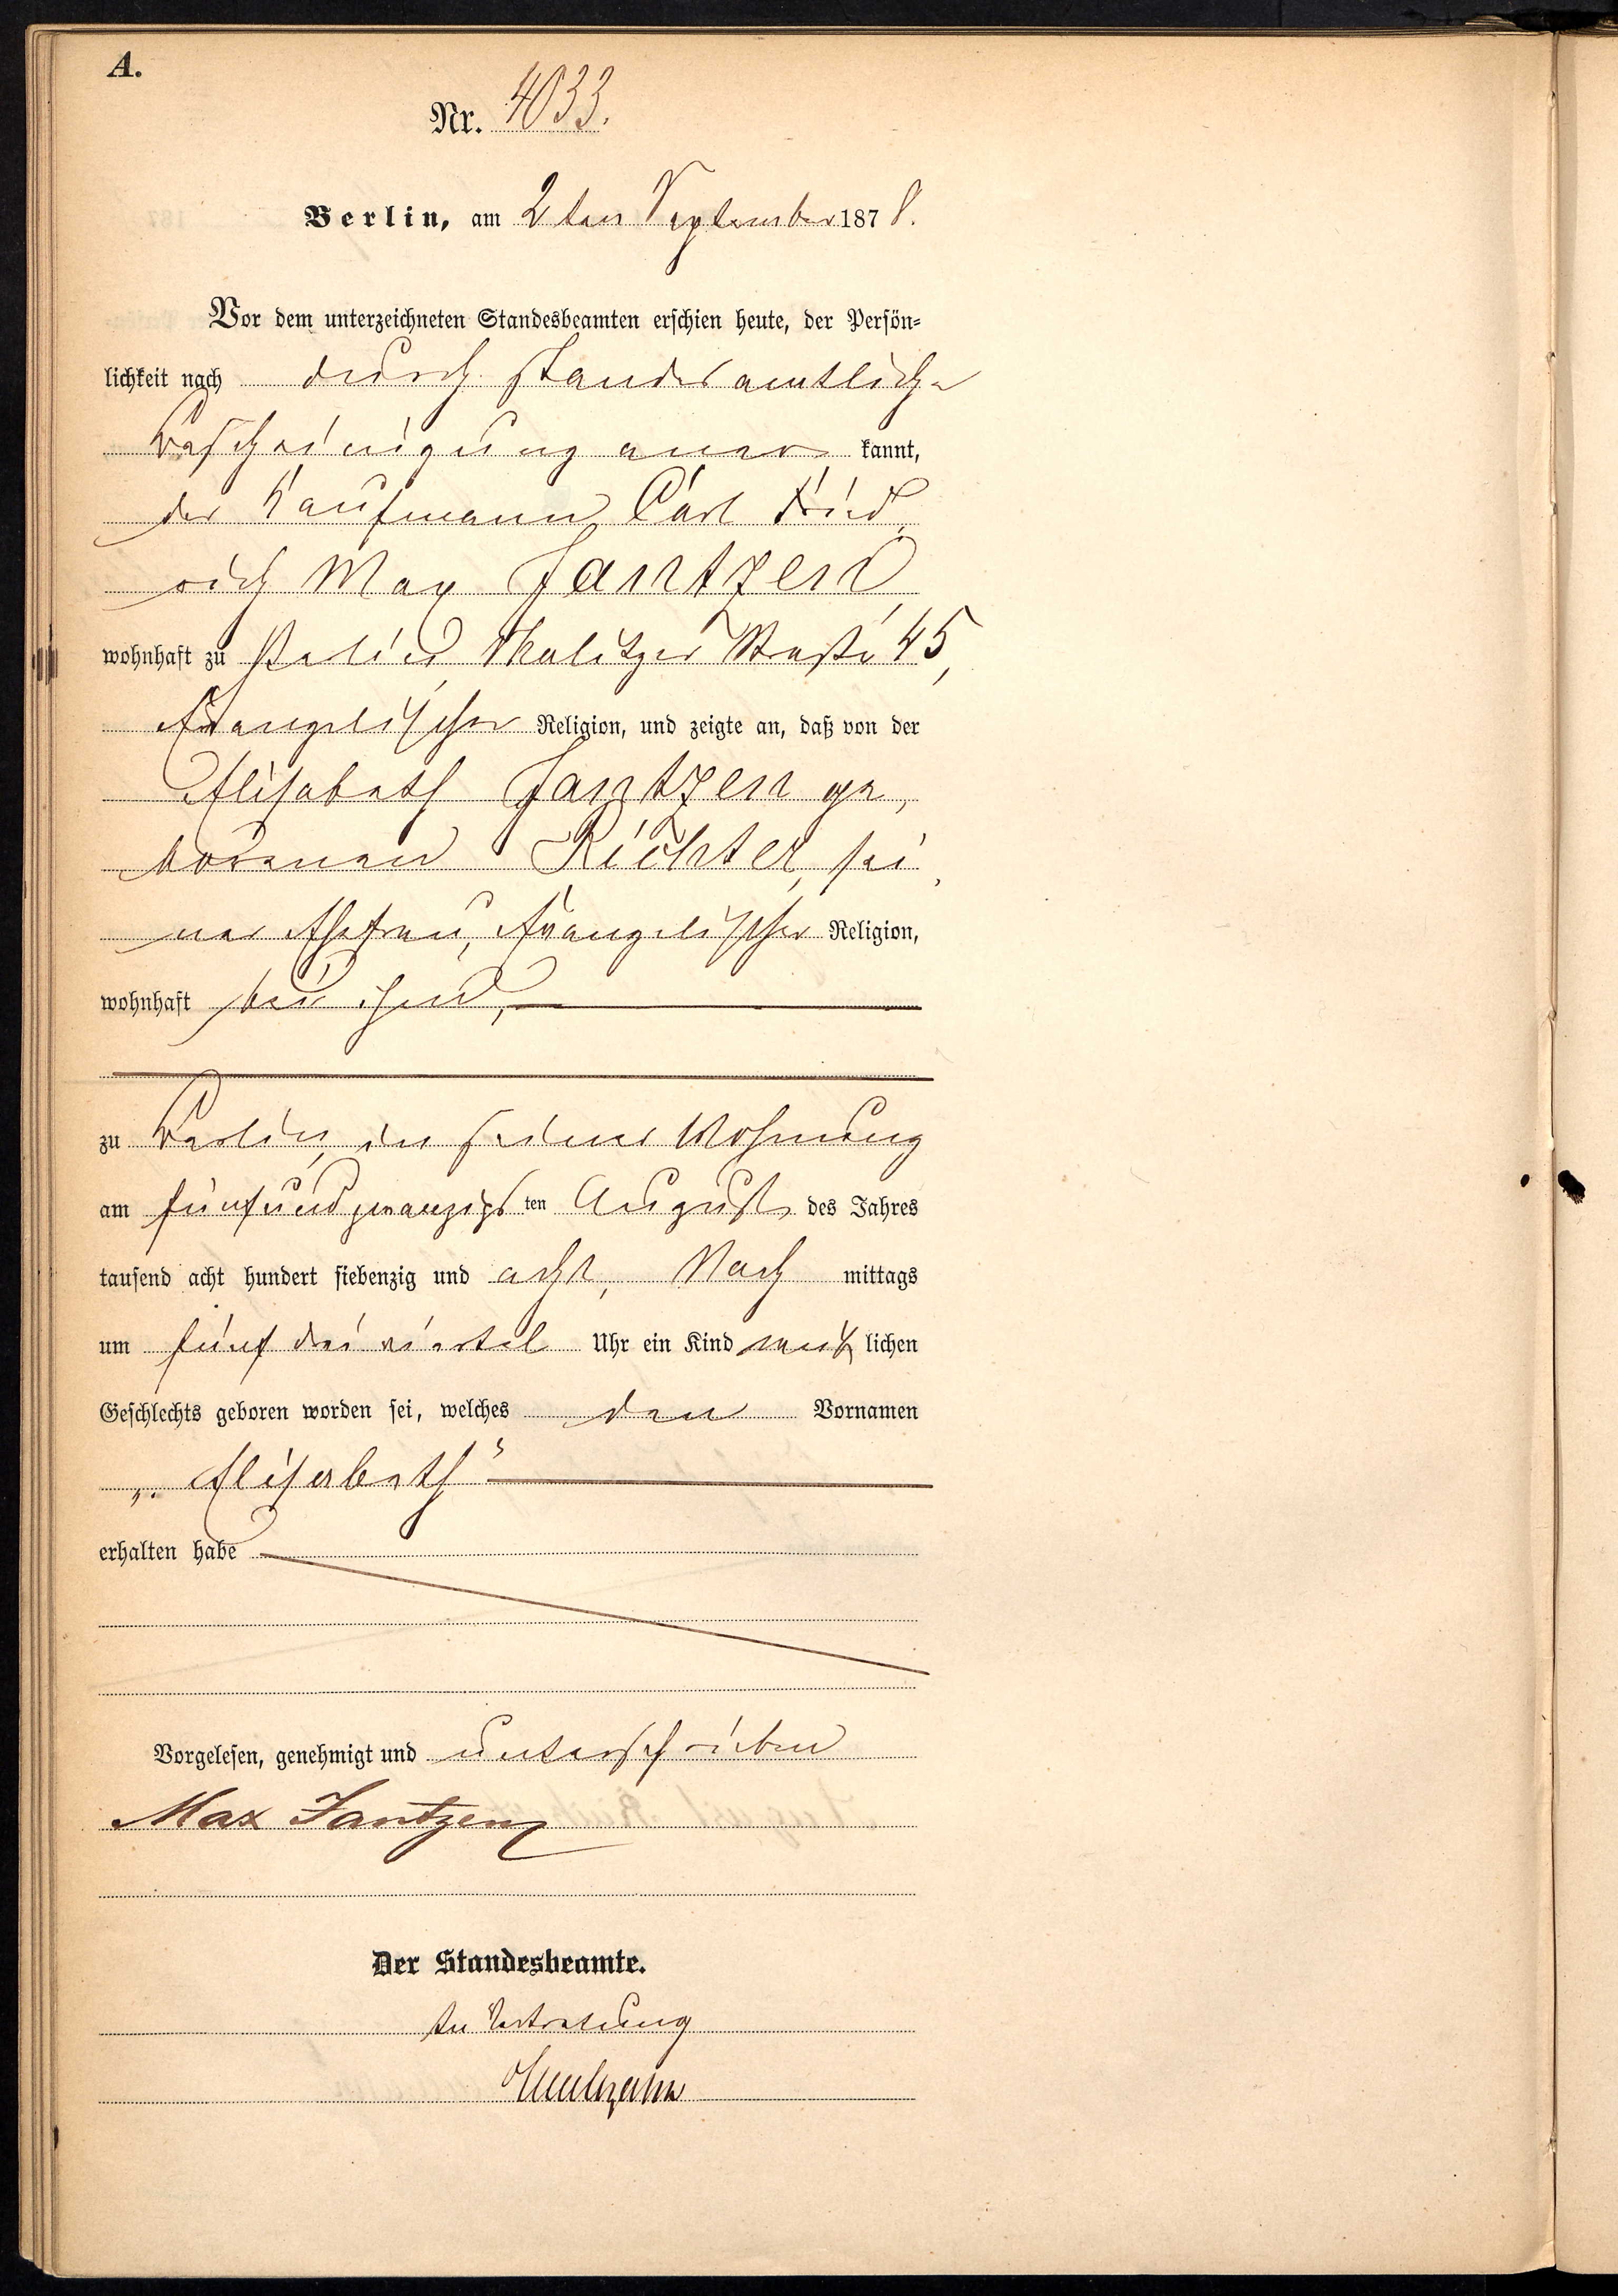 A.
Nr. 4033.
Berlin, am 2ten September 1878.
Vor dem unterzeichneten Standesbeamten erschien heute, der Persön-
lichkeit nach durch standesamtliche
Bescheinigung aner kannt,
der Kaufmann Carl Fried
rich Max Jantzen
wohnhaft zu Berlin, Skalitzer Straße 45,
Evangelischer Religion, und zeigte an, daß von der
Elisabeth Jantzen ge,
borenen Richter, sei
ner Ehefrau, Evangelischer Religion,
wohnhaft bei ihm,
zu Berlin, in seiner Wohnung
am fünfundzwanzigs ten August des Jahres
tausend acht hundert siebenzig und acht, Nach mittags
um fünf drei viertel Uhr ein Kind weib lichen
Geschlechts geboren worden sei, welches den Vornamen
„Elisabeth“
erhalten habe
Vorgelesen, genehmigt und unterschrieben
Max Jantzen
Der Standesbeamte.
In Vertretung